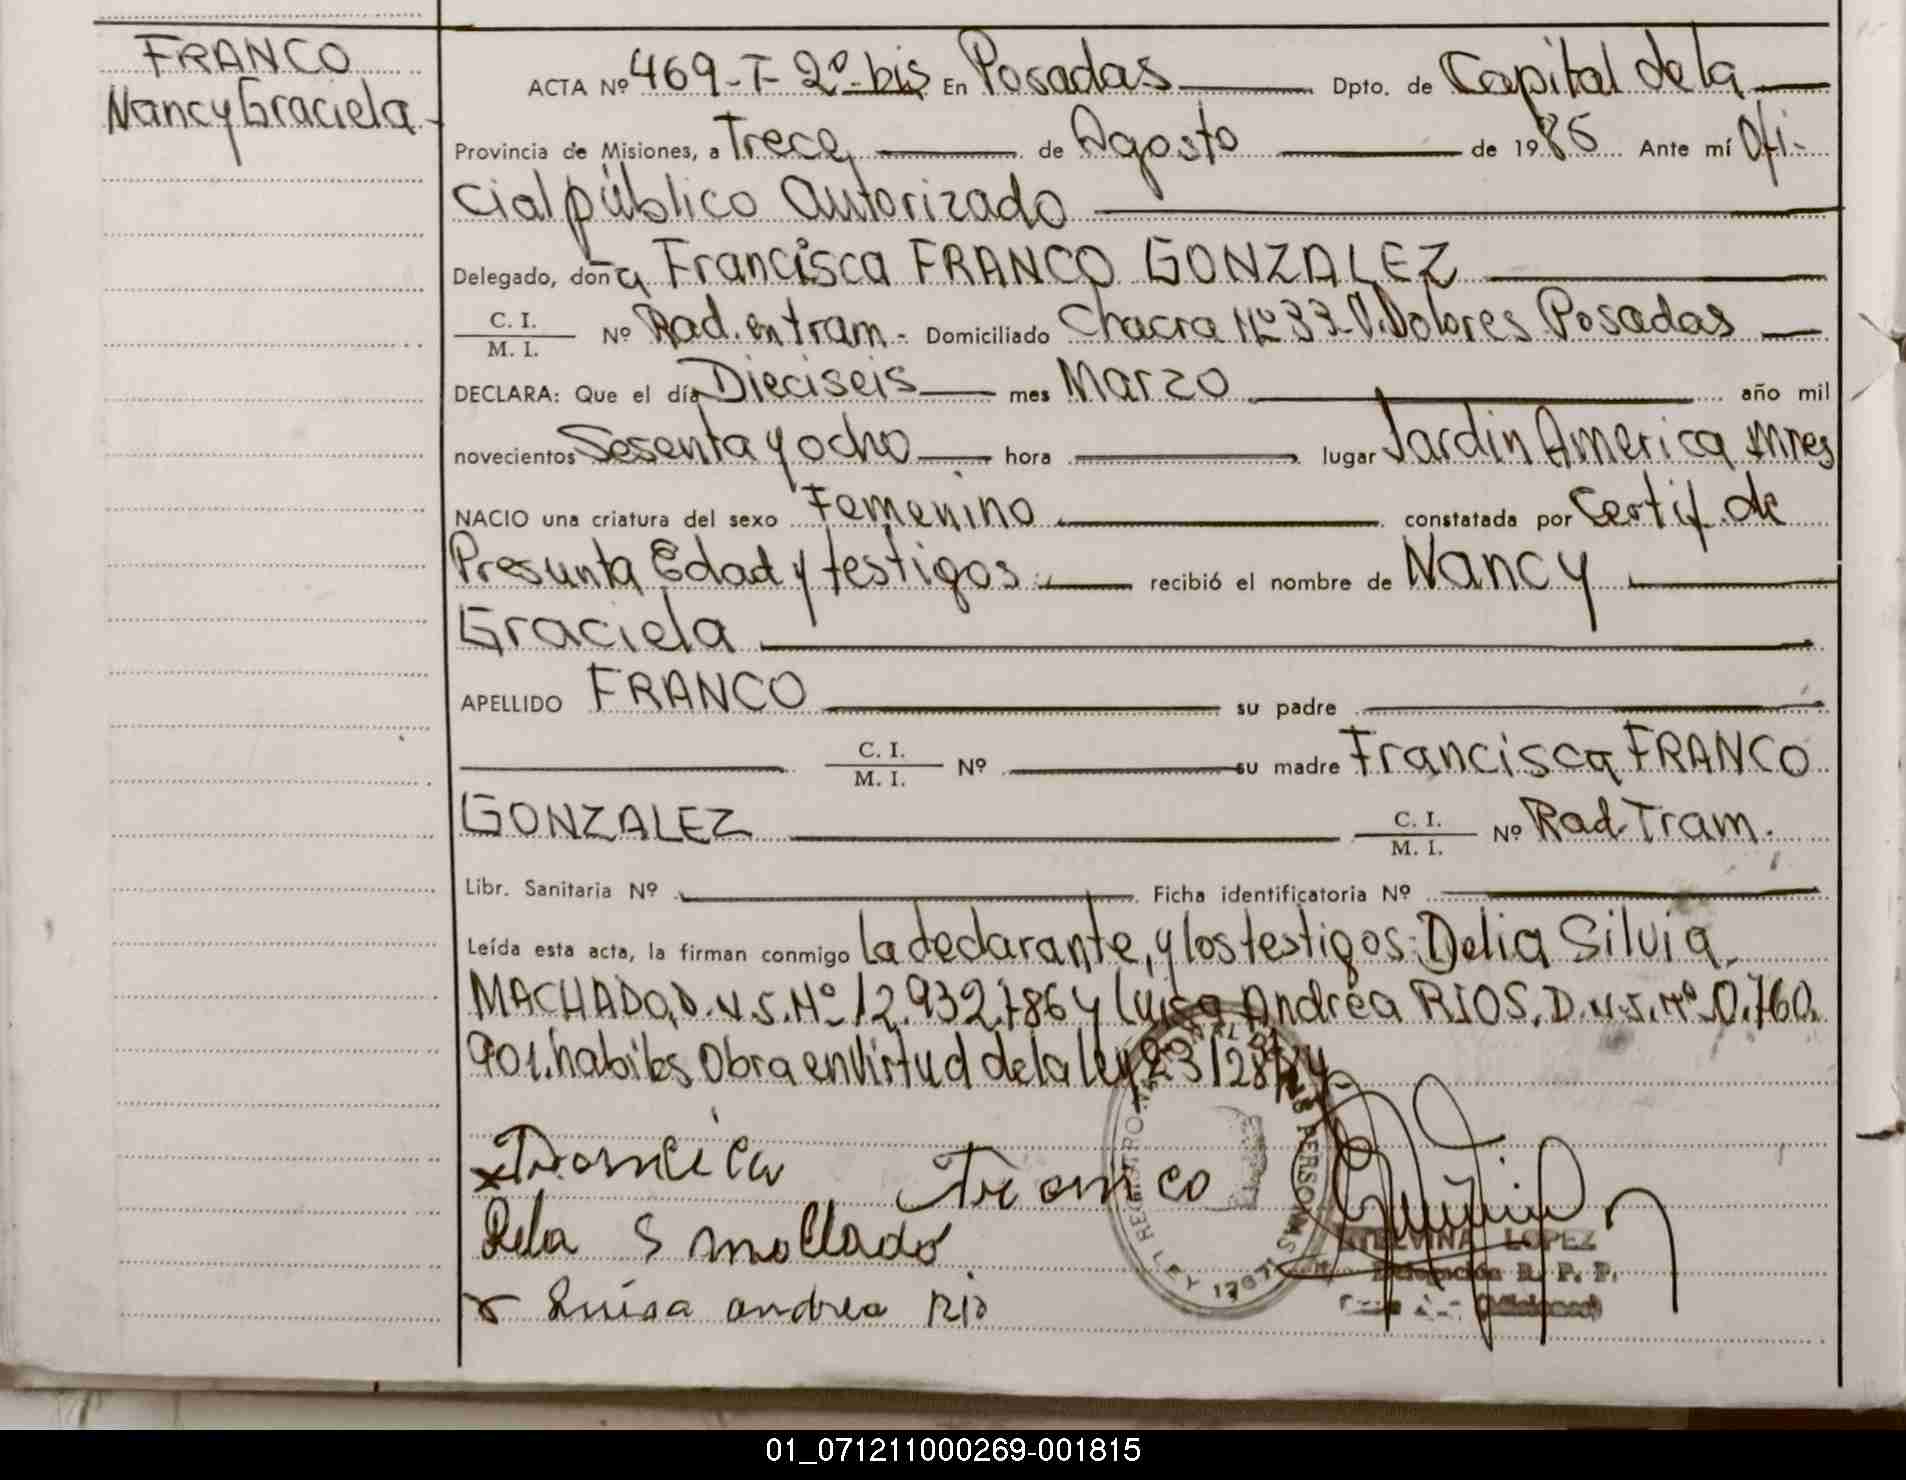 FRANCO
Nancy Graciela
ACTA Nº 469-T-2º-bis En Posadas Dpto. de Capital de la
Provincia de Misiones, a Trece de Agosto de 1986 Ante mí Ofi-
cial público Autorizado
Delegado, doña Francisca FRANCO GONZALEZ
C. I.
M. I. Nº Rad. en tram.- Domiciliado Chacra Nº 33-V. Dolores Posadas
DECLARA: Que el día Dieciseis mes Marzo año mil
novecientos Sesenta y ocho hora lugar Jardin America Mnes
NACIO una criatura del sexo Femenino constatada por Certif. de
Presunta Edad y testigos recibió el nombre de Nancy
Graciela
APELLIDO FRANCO su padre
C. I.
M. I. Nº su madre Francisca FRANCO
GONZALEZ C. I.
M. I. Nº Rad. Tram.
Libr. Sanitaria Nº Ficha identificatoria Nº
Leída esta acta, la firman conmigo La declarante, y los testigos: Delia Silvia
MACHADO, D.N.I. Nº 12.932.786 y Luisa Andrea RIOS, D.N.I. Nº 0.760.
901. habiles Obra en Virtud de la ley 23128
Francica Franco
S
Luisa andrea Rio
REGISTRO PERSONAS
LEY
LOPEZ
Delegación R. P. P.
(Misiones)
01_071211000269-001815